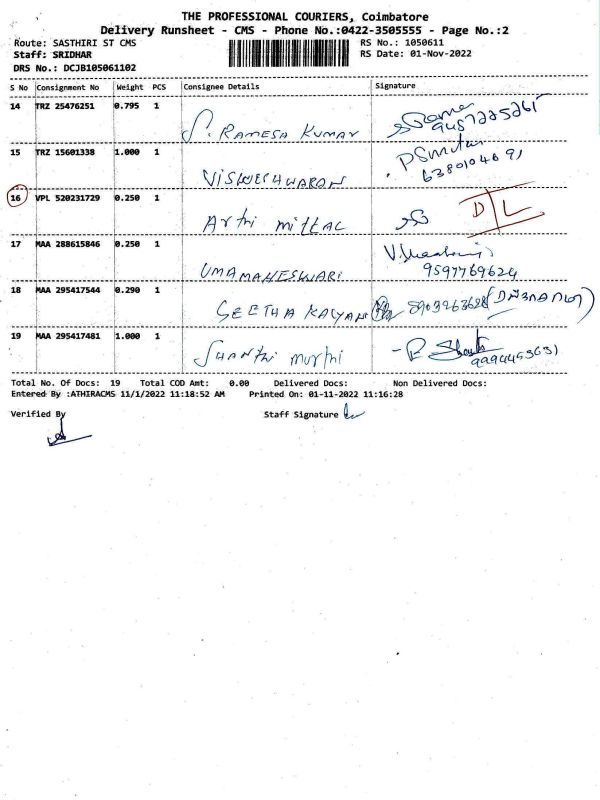 THE PROFESSIONAL COURIERS, Coimbatore
Delivery Runsheet - CMS - Phone No.:0422-3505555 - Page No.:2
Route: SASTHIRI ST CMS RS No.: 1050611
Staff: SRIDHAR RS Date: 01-Nov-2022
DRS No.: DCJB105061102
S No Consignment No Weight PCS Consignee Details Signature
14 TRZ 25476251 0.795 1
S. RAMESA KUMAR
15 TRZ 15601338 1.000 1
VISWESHWARON
6380104691
16 VPL 520231729 0.250 1
Arthi mittal D/L
17 MAA 288615846 0.250 1
UMAMAHESWARI 9597769624
18 MAA 295417544 0.290 1
SEETHA KALYAN 8903263628
19 MAA 295417481 1.000 1
Shanthi murthi
Total No. Of Docs: 19 Total COD Amt: 0.00 Delivered Docs: Non Delivered Docs:
Entered By :ATHIRACMS 11/1/2022 11:18:52 AM Printed On: 01-11-2022 11:16:28
Verified By Staff Signature